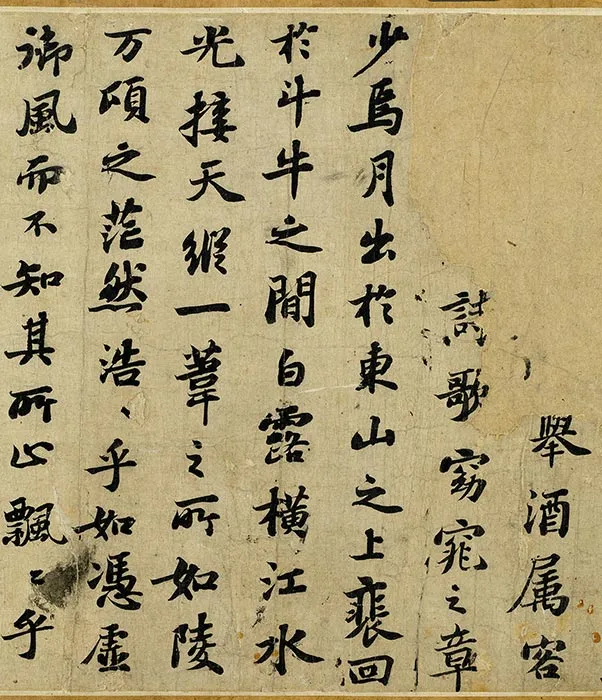 舉酒属客
詩歌窈窕之章
少焉月出於東山之上裴回
於斗牛之間白露横江水
光接天縱一葦之所如陵
万頃之茫然浩〻乎如馮虚
御風而不知其所止飄〻乎